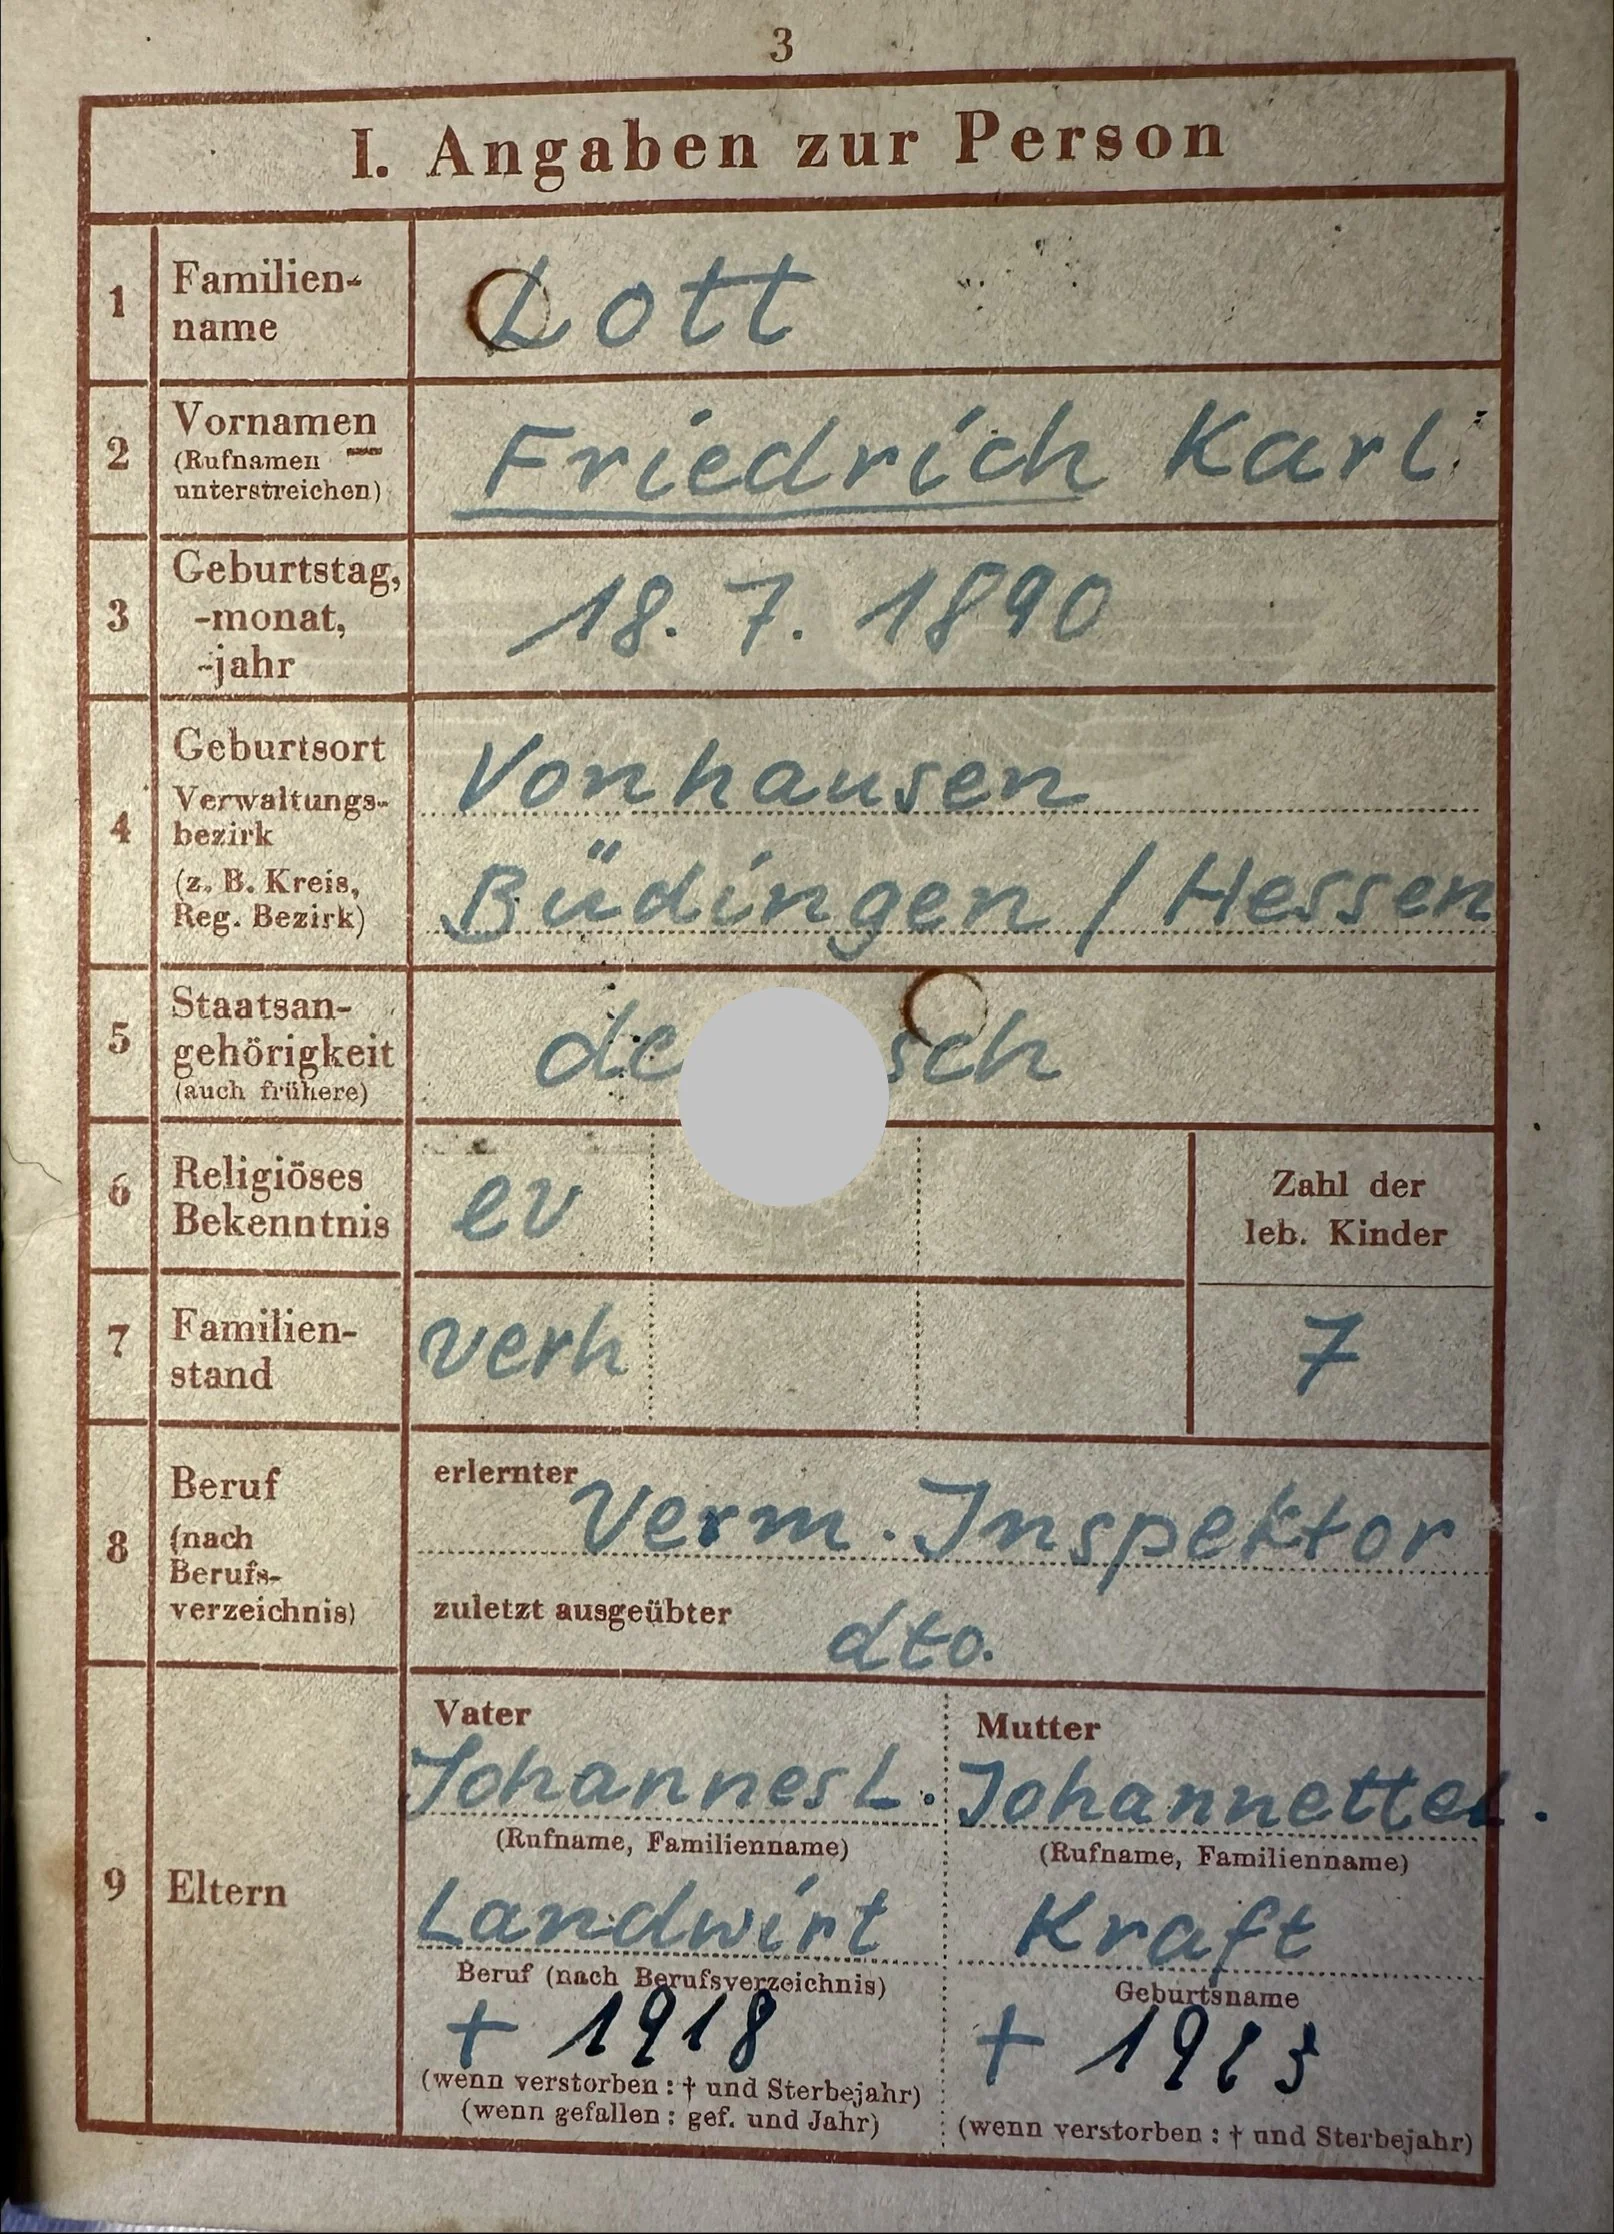 3
I. Angaben zur Person
1
Familien-
name
Lott
2
Vornamen
(Rufnamen
unterstreichen)
Friedrich Karl
3
Geburtstag,
-monat,
-jahr
18. 7. 1890
4
Geburtsort
Verwaltungs-
bezirk
(z. B. Kreis,
Reg. Bezirk)
Vonhausen
Büdingen / Hessen
5
Staatsan-
gehörigkeit
(auch frühere)
6
Religiöses
Bekenntnis
ev
Zahl der
leb. Kinder
7
Familien-
stand
verh
7
8
Beruf
(nach
Berufs-
verzeichnis)
erlernter
Verm. Inspektor
zuletzt ausgeübter
dto.
9
Eltern
Vater
Johannes L.
(Rufname, Familienname)
Landwirt
Beruf (nach Berufsverzeichnis)
+ 1918
(wenn verstorben : † und Sterbejahr)
(wenn gefallen : gef. und Jahr)
Mutter
Johannette L.
(Rufname, Familienname)
Kraft
Geburtsname
+
(wenn verstorben : † und Sterbejahr)